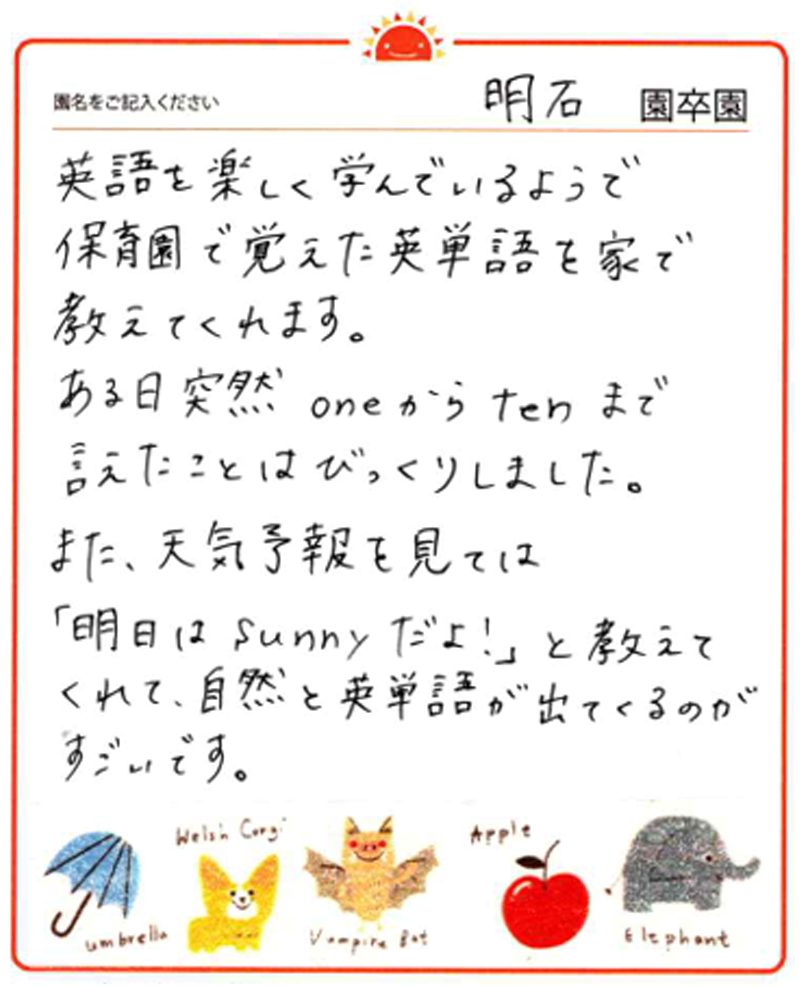 園名をご記入ください 明石 園卒園
英語を楽しく学んでいるようで
保育園で覚えた英単語を家で
教えてくれます。
ある日突然 oneから tenまで
言えたことはびっくりしました。
また、天気予報を見ては
「明日は sunny だよ!」と教えて
くれて、自然と英単語が出てくるのが
すごいです。
Welsh Corgi
Apple
umbrella
Vampire Bat
Elephant